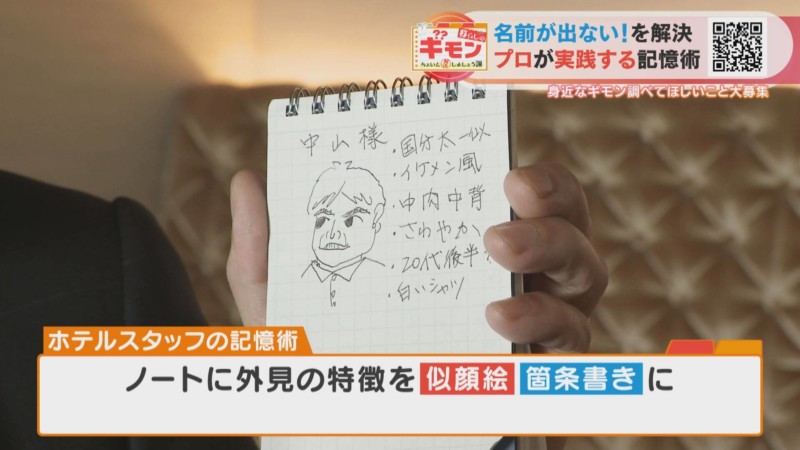 名前が出ない!を解決
プロが実践する記憶術
??
暮らしの
キモン
身近なギモン調べてほしいこと大募集
中山様
・国分太一似
・イケメン風
・中肉中背
・さわやか
・20代後半
・白いシャツ
ホテルスタッフの記憶術
ノートに外見の特徴を 似顔絵 箇条書き に